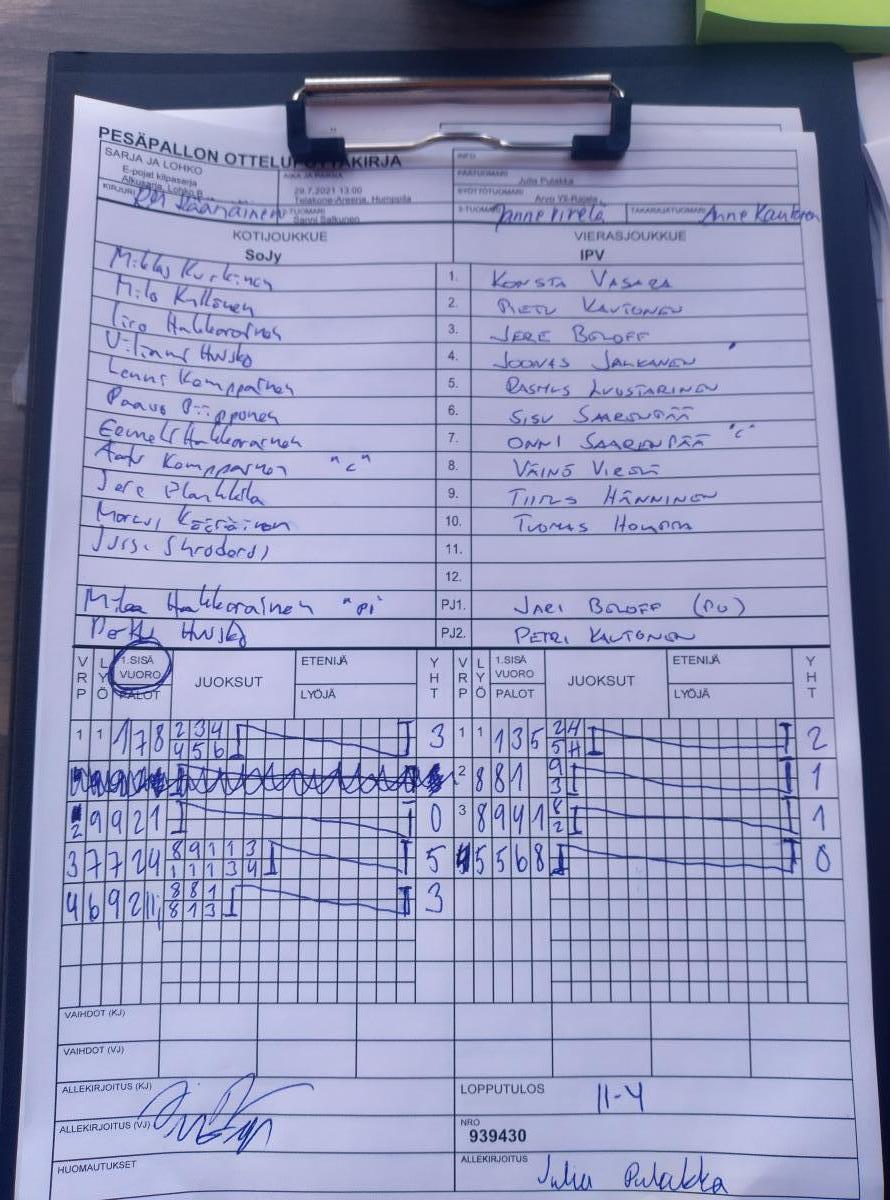 PESÄPALLON OTTELUPÖYTÄKIRJA
SARJA JA LOHKO
E-pojat kilpasarja
Alkusarja, Lohko B
AIKA JA PAIKKA
29.7.2021 13:00
Telakone-Areena, Humppila
INFO
PÄÄTUOMARI
Julia Pulakka
SYÖTTÖTUOMARI
Arvo Yli-Rajala
KIRJURI
2-TUOMARI
Sanni Salkunen
3-TUOMARI
TAKARAJATUOMARI
KOTIJOUKKUE VIERASJOUKKUE
SoJy IPV
1. KONSTA VASARA
Milo Kyllönen 2. PIETU KAUTONEN
Iiro Hakkarainen 3. JERE BOLOFF
Huisko 4. JOONAS JALKANEN
Komppainen 5. RASMUS LUOSTARINEN
Paavo Piipponen 6. SISU SAARENPÄÄ
Eemeli Hakkarainen 7. ONNI SAARENPÄÄ "C"
Komppainen "C" 8. VÄINÖ
Jere 9. HÄNNINEN
10. TUOMAS
11.
12.
Hakkarainen PJ1. JARI BOLOFF
Huisko PJ2. PETRI KAUTONEN
VRP LYÖ 1.SISÄ VUORO PALOT JUOKSUT ETENIJÄ LYÖJÄ YHT VRP LYÖ 1.SISÄ VUORO PALOT JUOKSUT ETENIJÄ LYÖJÄ YHT
1 1 1 7 8 2 3 4 3 1 1 1 3 5 2 4 2
4 5 6 5 11
2 8 8 1 9 1
3
2 9 9 2 1 0 3 8 9 4 1 8 1
2
3 7 7 2 4 8 9 1 1 3 5 4 5 5 6 8 0
1 1 1 3 4
4 6 9 2 11 8 8 1 3
8 1 3
VAIHDOT (KJ)
VAIHDOT (VJ)
ALLEKIRJOITUS (KJ) LOPPUTULOS 11-4
ALLEKIRJOITUS (VJ) NRO
939430
HUOMAUTUKSET ALLEKIRJOITUS Julia Pulakka